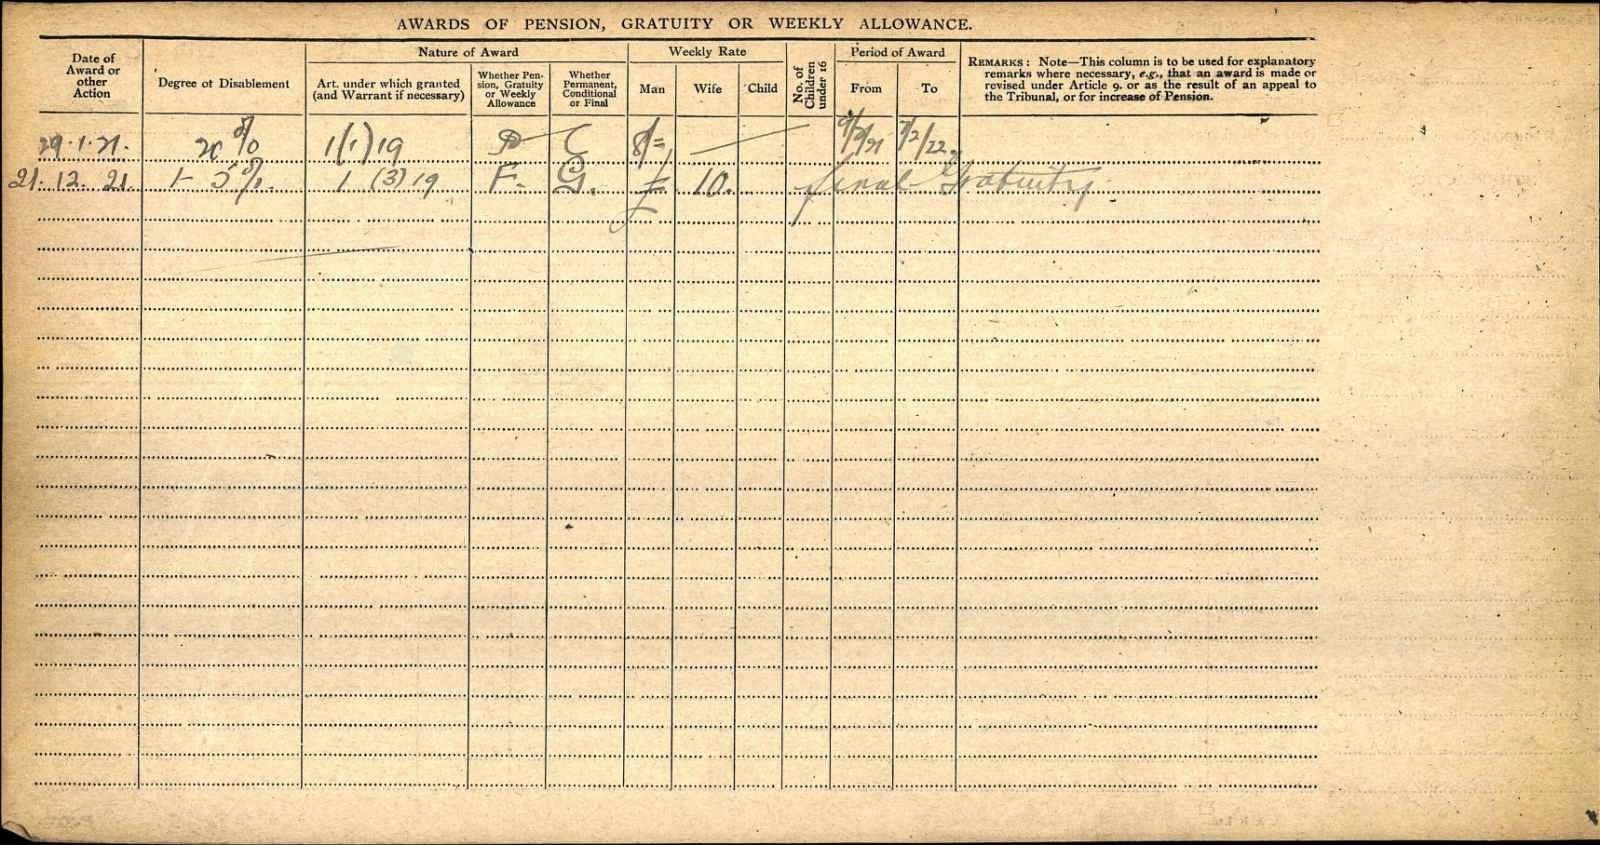 AWARDS OF PENSION, GRATUITY OR WEEKLY ALLOWANCE.
Date of Award or other Action
Degree of Disablement
Nature of Award
Art. under which granted (and Warrant if necessary)
Whether Pension, Gratuity or Weekly Allowance
Whether Permanent, Conditional or Final
Weekly Rate
Man
Wife
Child
No. of Children under 16
Period of Award
From
To
REMARKS: Note—This column is to be used for explanatory
remarks where necessary, e.g., that an award is made or
revised under Article 9. or as the result of an appeal to
the Tribunal, or for increase of Pension.
29.1.21. 20 % 1(1)19 P C 8/= 9/2/21 7/2/22
21. 12. 21. 1-5%. 1 (3) 19 F. G. £ 10. final Gratuity